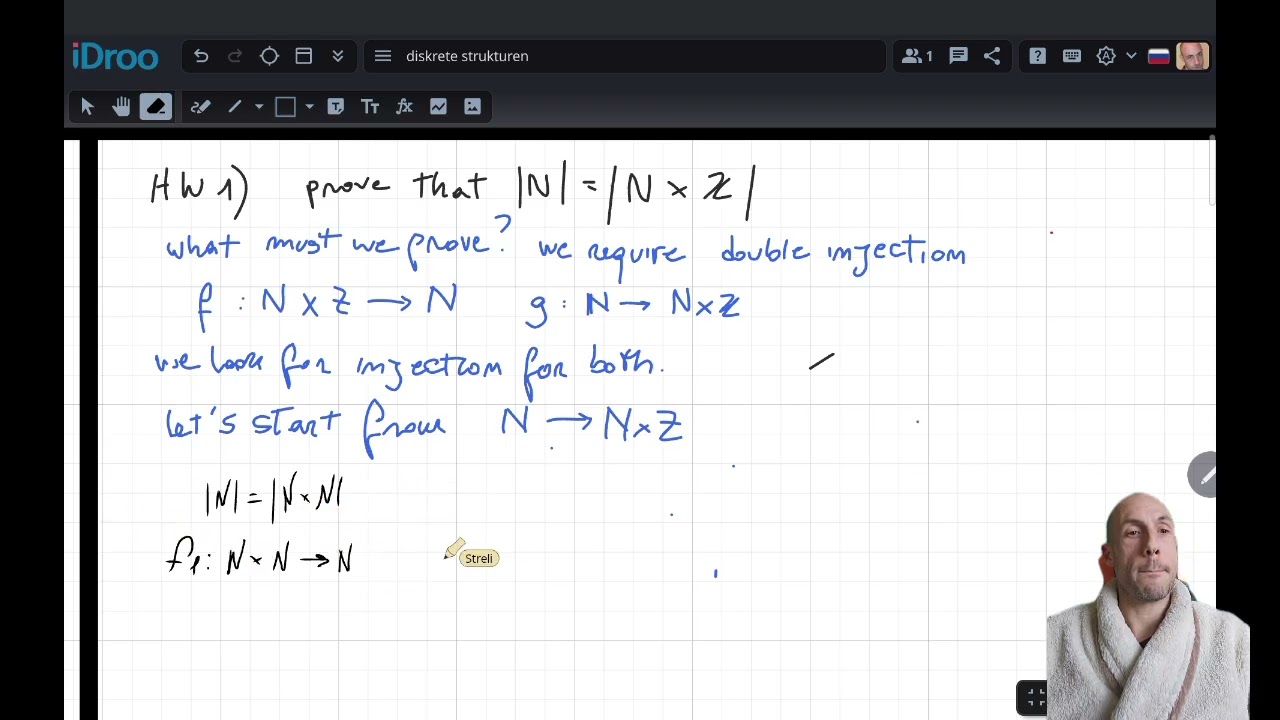 iDroo
diskrete strukturen
1
HW 1) prove that |N| = |N × Z|
what must we prove? we require double injection
f : N × Z → N g : N → N × Z
we look for injection for both.
let's start from N → N × Z
|N| = |N × N|
f₁ : N × N → N
Streli